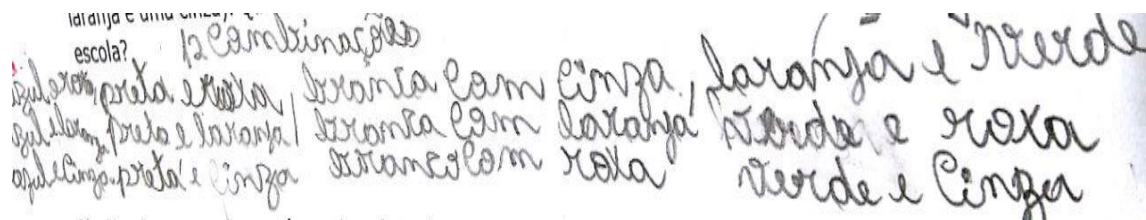 laranja e uma cinza).
escola? 12 Combinações
azul e roxa, preta e roxa, branca com cinza, laranja e verde
azul e laranja, preta e laranja, branca com laranja verde e roxa
azul e cinza, preta e cinza branca com roxa verde e cinza